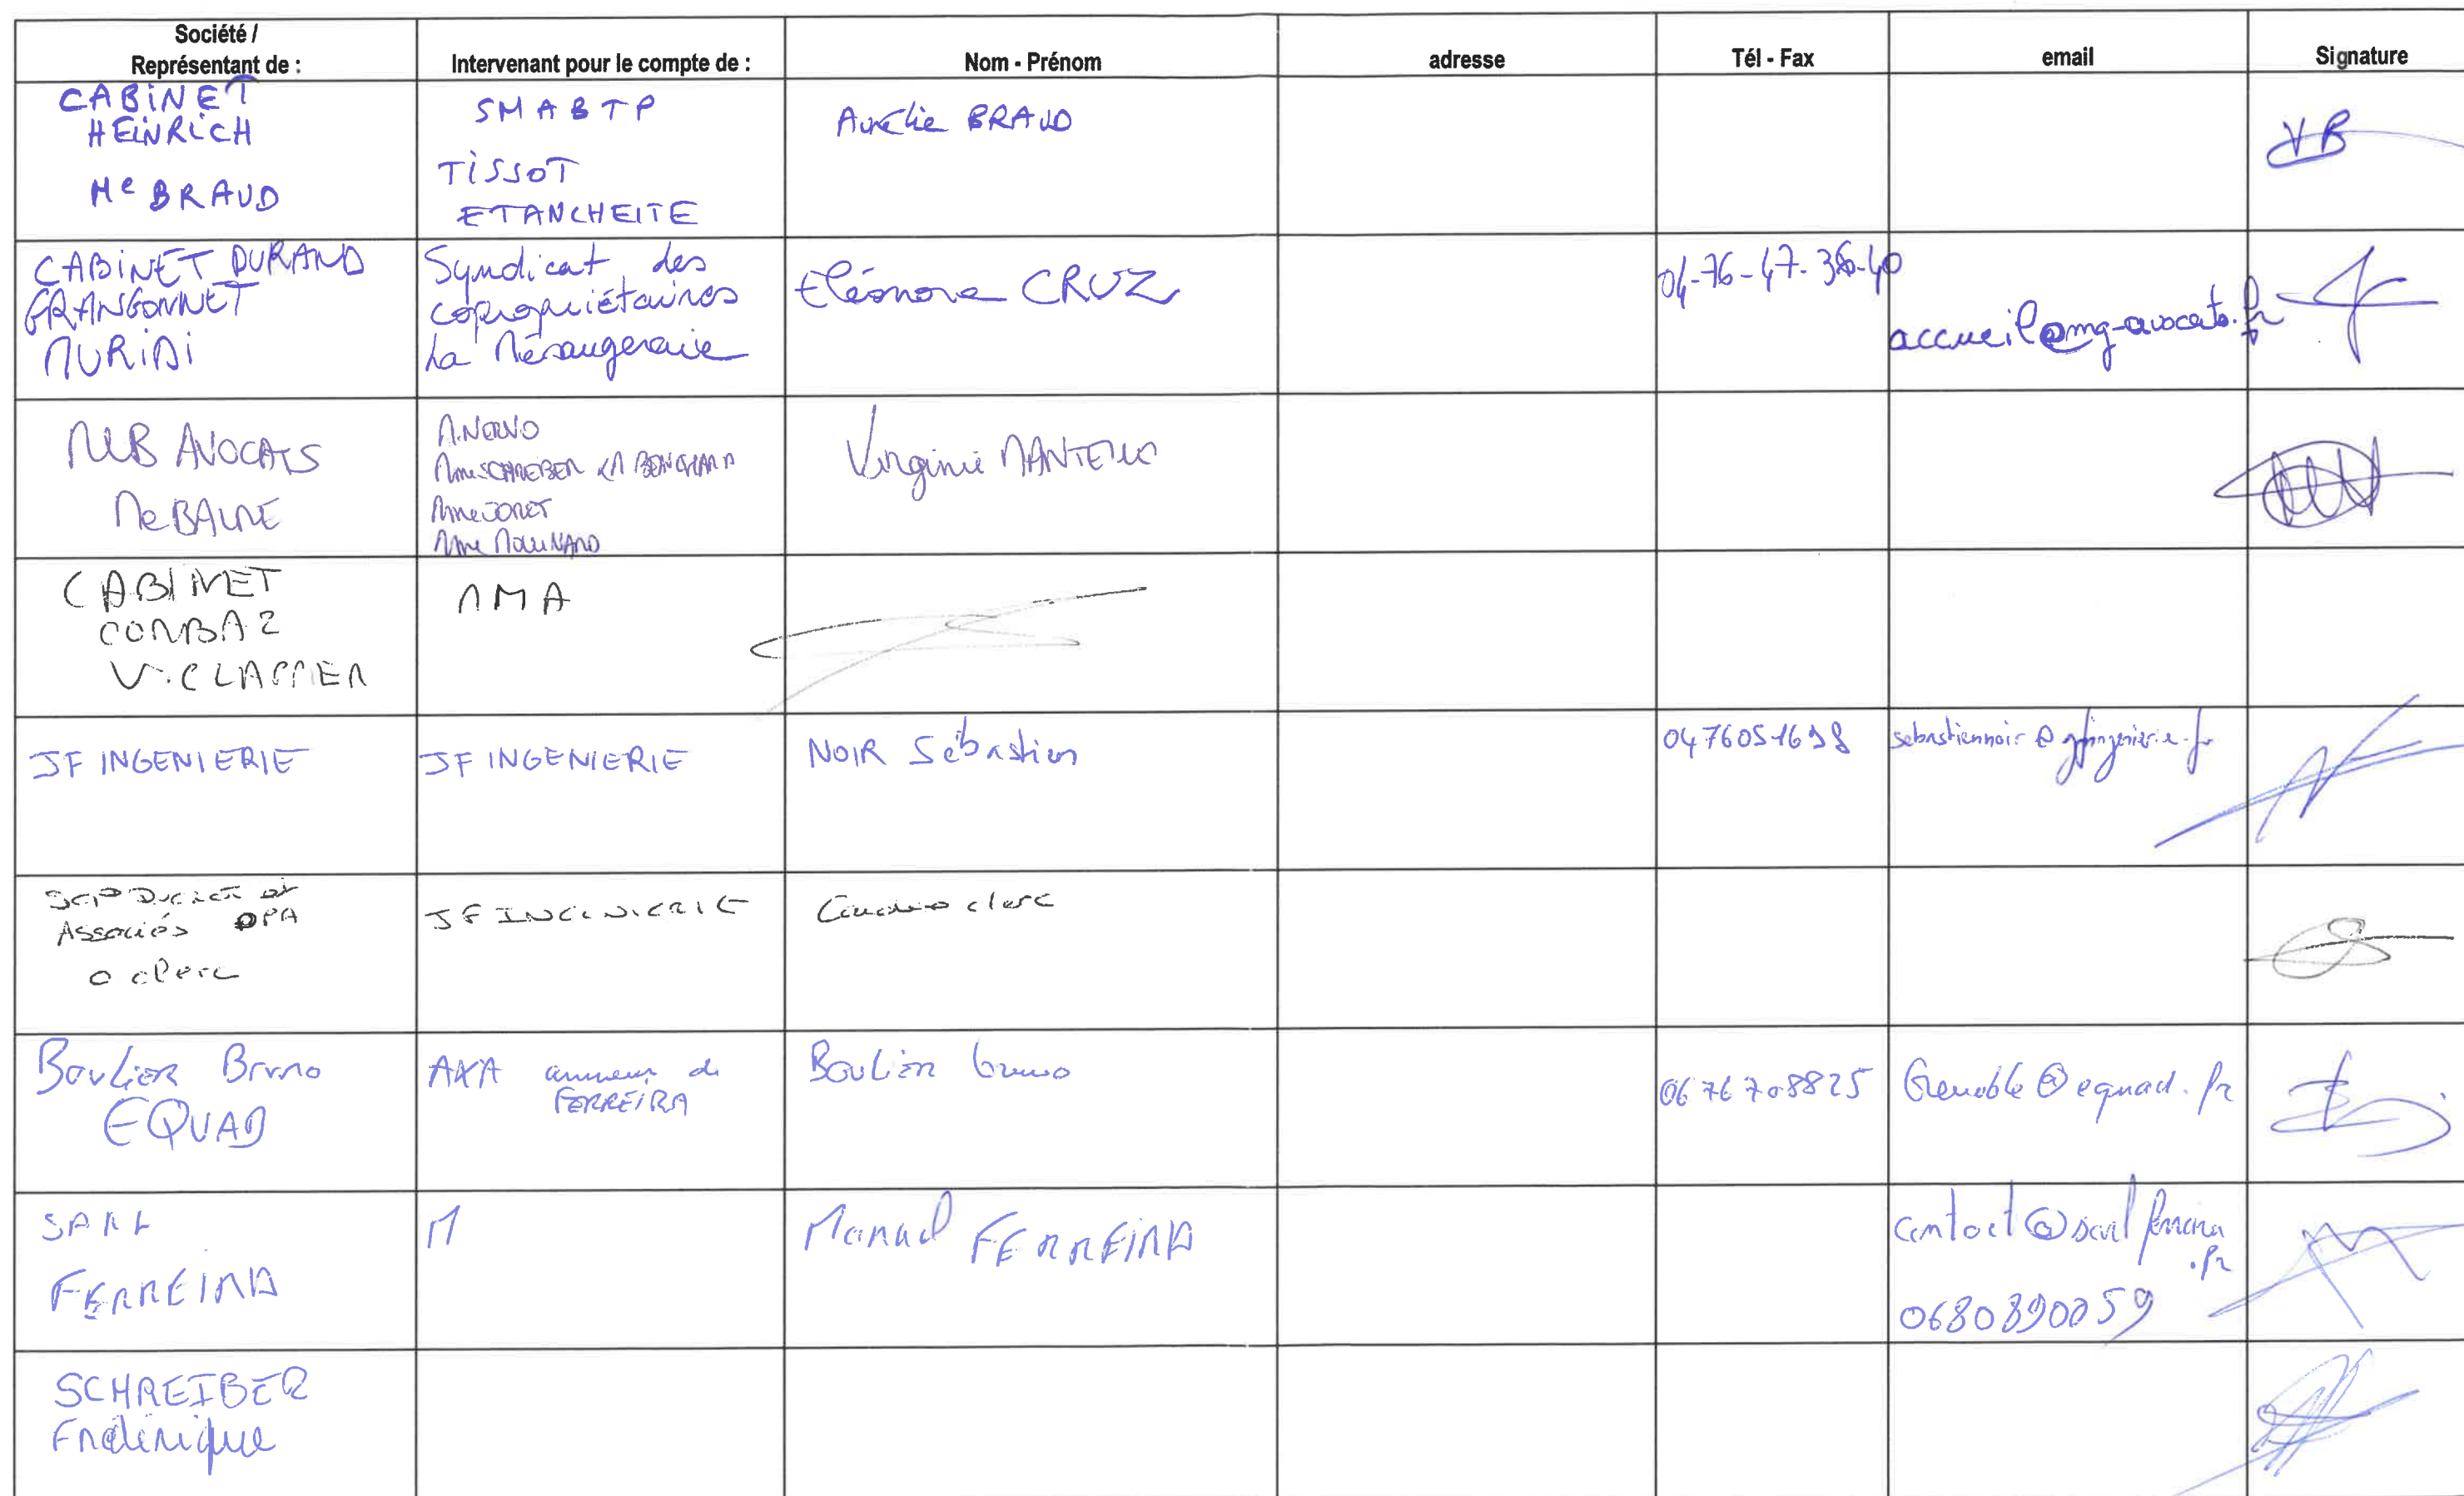 Société /
Représentant de :
Intervenant pour le compte de :
Nom - Prénom
adresse
Tél - Fax
email
Signature
CABINET
HEINRICH
Me BRAUD
SMABTP
TISSOT
ETANCHEITE
Aurélie BRAUD
CABINET DURAND
FRANGONNET
MURIDI
Syndicat des
copropriétaires
La Mésangeraie
Eléonore CRUZ
04-76-47-36-40
accueil@mg-avocats.fr
MLB AVOCATS
Me BALME
Mme SCHREIBER
Mme JORET
Mme MOLLINARD
Virginie
CABINET
COMBAZ
V. CLAPPIER
MMA
JF INGENIERIE
JF INGENIERIE
NOIR Sébastien
0476051698
sebastiennoir@jfingenierie.fr
SCP et
Associés DPA
O clerc
JF INGENIERIE
clerc
Boulier Bruno
EQUAD
AXA assureur de
FERREIRA
Boulier bruno
0676708825
Grenoble@equad.fr
SARL
FERREIRA
M
Manuel FERREIRA
contact@sarlferreira
.fr
0680890059
SCHREIBER
Frédérique